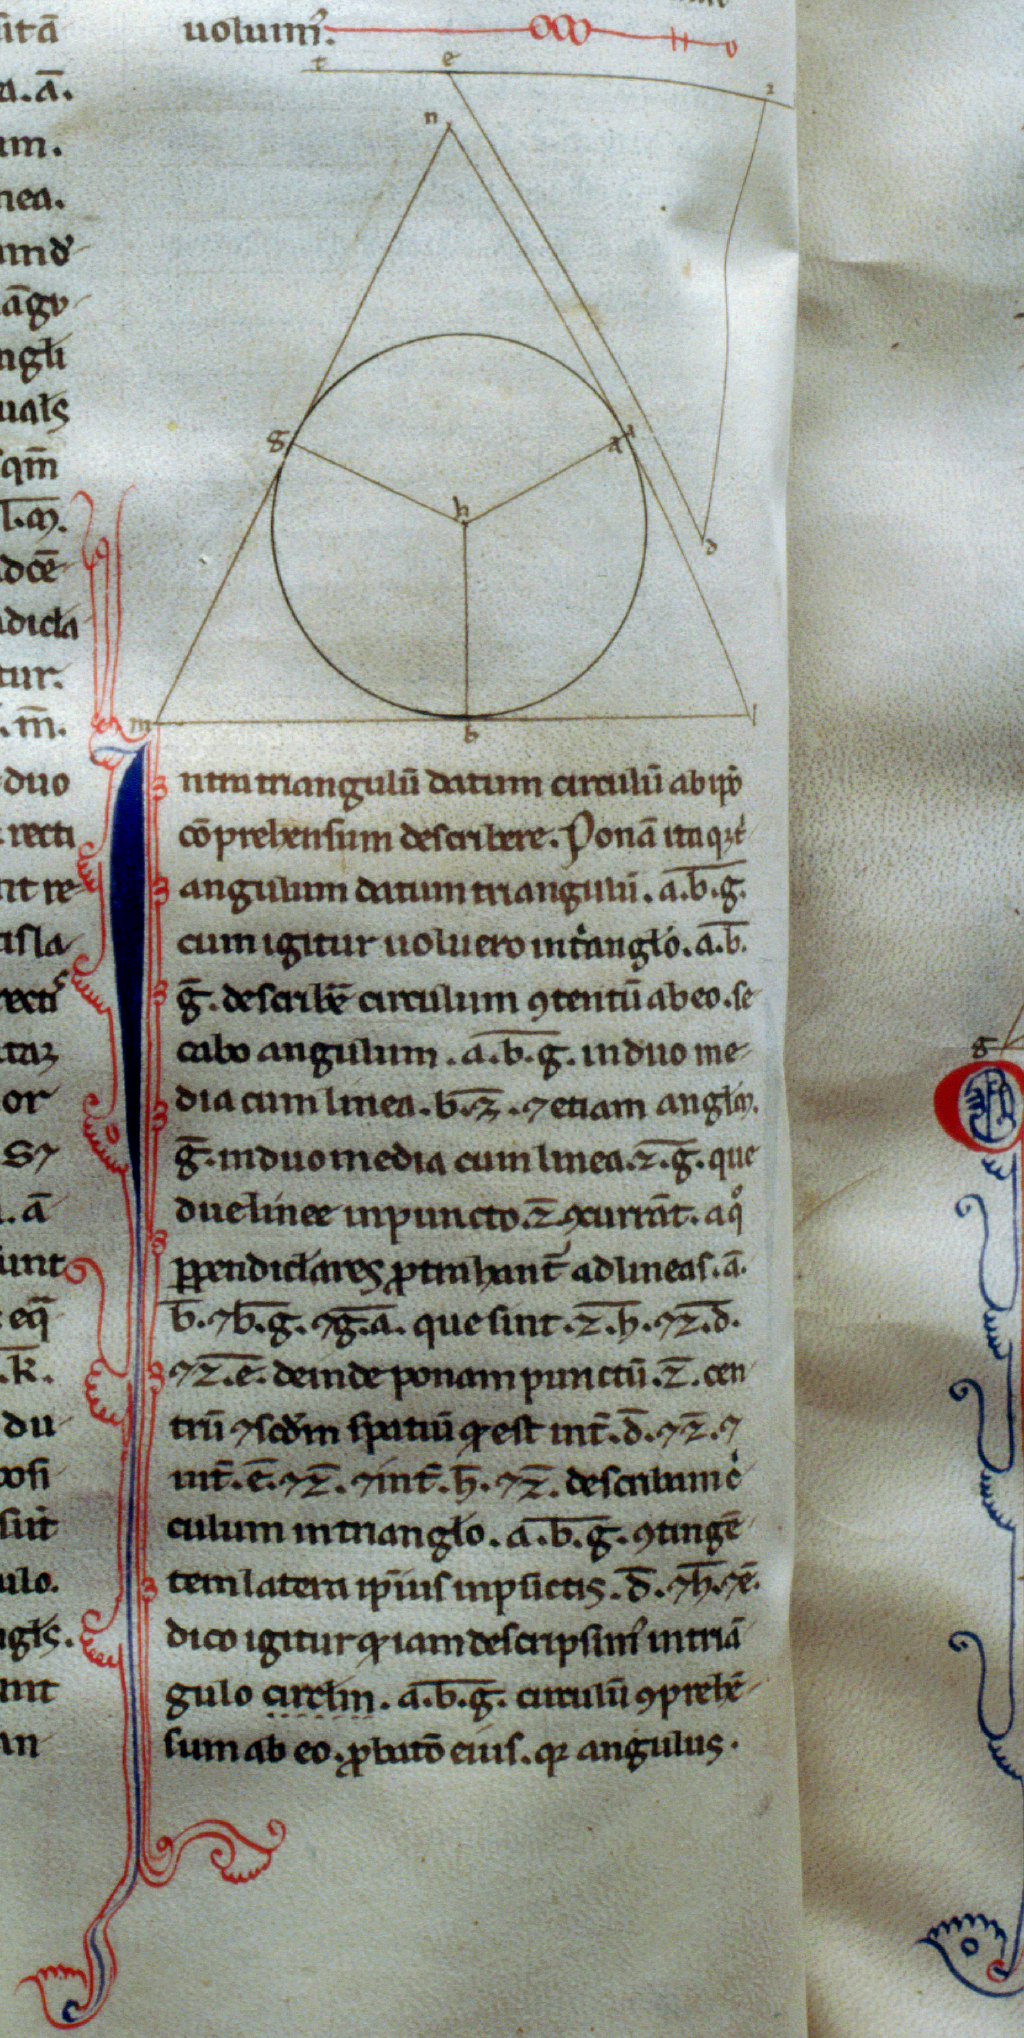 uolum᷑.
t e z
n
g a
h
d
m b l
Intra triangulū datum circulū ab ip̄o
cōprehensum describere. Ponā itaqꝫ t͛
angulum datum triangulū. a.b.g.
cum igitur uoluero int͛anglo. a.b.
g. describē circulum ꝯtentū ab eo. se
cabo angulum. a.b.g. in duo me-
dia cum linea. b.z. ⁊ etiam anglm̄.
g. in duo media cum linea. z.g. que
due linee in puncto. z ꝯcurrāt. a qͦ
ꝑpendicłares ꝓtrahant᷑ ad lineas. a.
b. ⁊ b.g. ⁊ g.a. que sint. z.h. ⁊ z.d.
⁊ z.e. deinde ponam punctū. z. cen
trū ⁊ scd̄m spatiū qͥ est int͛. d. ⁊ z. ⁊
int͛. e. ⁊ z. ⁊ int͛. h. ⁊ z. describam c͛
culum in trianglo. a.b.g. ꝯtingē
tem latera ip̄ius in pūctis. d. ⁊ h. ⁊ e.
dico igitur qͥ iam descripsim᷒ in triā
gulo circłm. a.b.g. circulū ꝯprehē-
sum ab eo. ꝓbatō eius. qꝛ angulus.
uitā
a.ā.
am.
nea.
āgu-
ngli
uals
sqm̄
l.m.
adcē
dicła
tur.
m̄.
duo
recti
nt re-
or
.ā
unt
eq̄
.k̄.
du-
posi
sūt
ulo.
ngłs.
unt
an
g